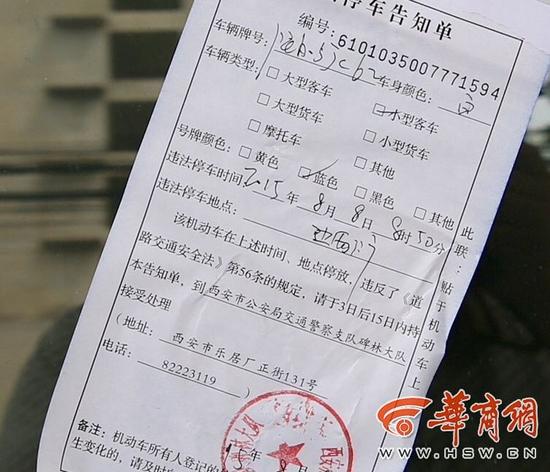 停车告知单
编号:6101035007771594
车辆牌号: 车身颜色:白
车辆类型: □大型客车 □小型客车
□大型货车 □小型货车
□摩托车 □其他
号牌颜色: □黄色 □蓝色 □黑色 □其他
违法停车时间: 2015年8月8日8时50分
违法停车地点:
该机动车在上述时间、地点停放,违反了《道
路交通安全法》第56条的规定,请于3日后15日内持
本告知单,到西安市公安局交通警察支队碑林大队
接受处理
(地址: 西安市乐居厂正街131号
电话: 82223119 )
备注:机动车所有人登记的
生变化的,请及时
此联:贴于机动车上
华商网
WWW.HSW.CN